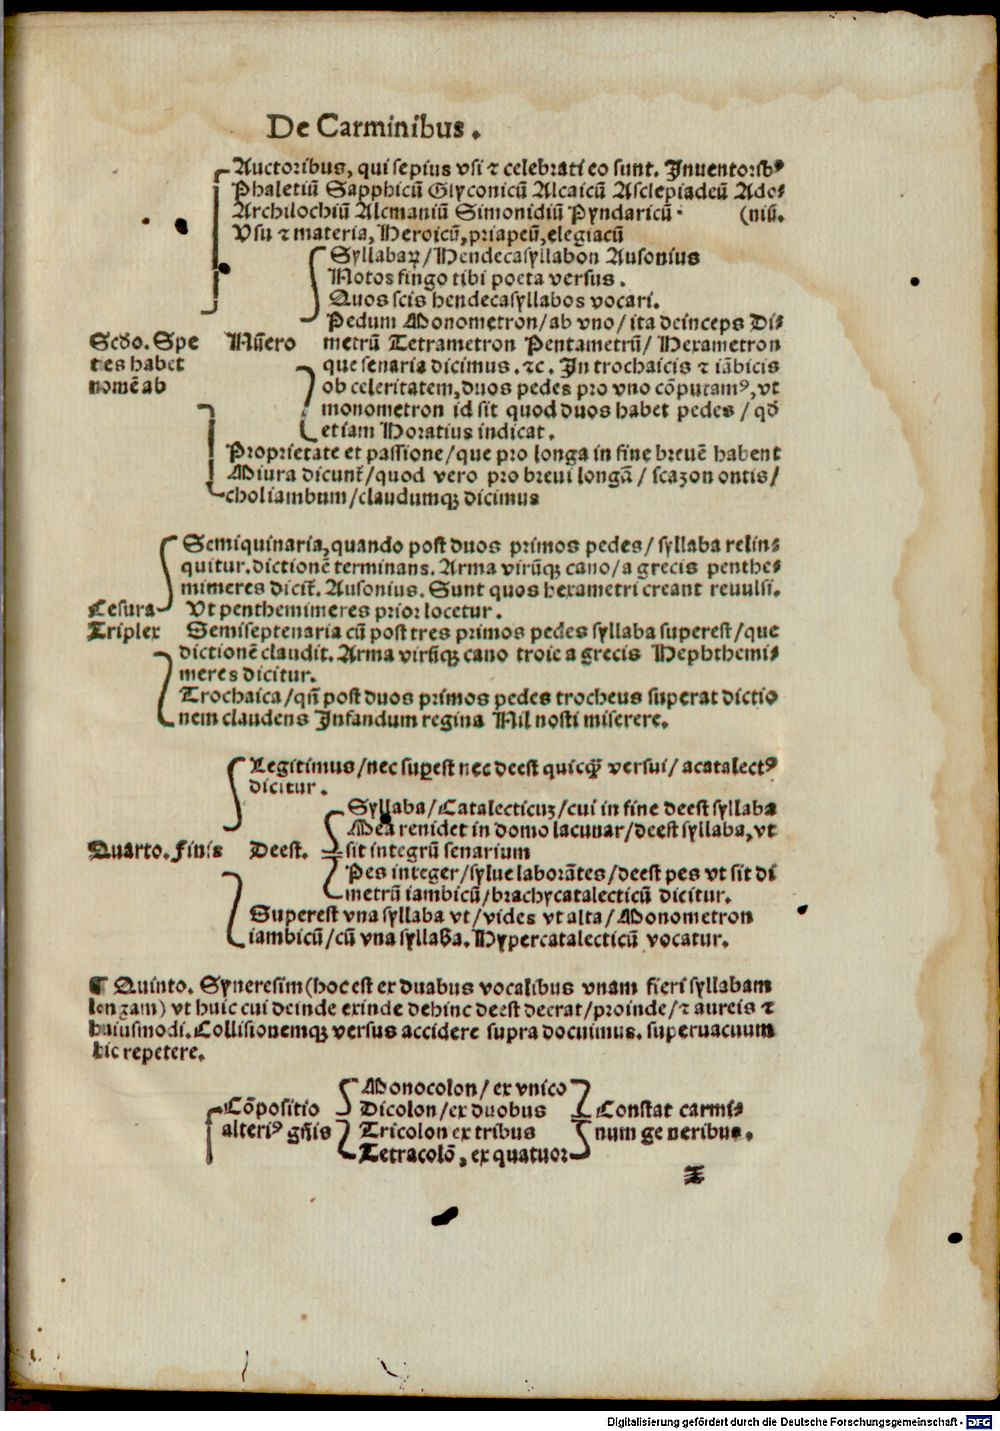 De Carminibus.
Auctoribus, qui sepius vsi ⁊ celebrati eo sunt. Inuentoribꝰ
Phaletiū Sapphicū Glyconicū Alcaicū Asclepiadeū Ado-
Archilochiū Alcmaniū Simonidiū Pyndaricū· (niū.
Vsu ⁊ materia, Heroicū, priapeū, elegiacū
Syllabaꝝ/Hendecasyllabon Ausonius
Notos fingo tibi poeta versus.
Quos scis hendecasyllabos vocari.
Pedum Monometron/ab vno/ita deinceps Di-
Scd̄o. Spe Nūero metrū Tetrametron Pentametrū/Hexametron
cies habet que senaria dicimus. ⁊c. In trochaicis ⁊ iābicis
nomē ab ob celeritatem, duos pedes pro vno cōputamꝰ, vt
monometron id sit quod duos habet pedes/qd̄
etiam Horatius indicat.
Proprietate et passione/que pro longa in fine breuē habent
Miura dicunt̄/quod vero pro breui longā/scazon ontis/
choliambum/claudumqꝫ dicimus
Semiquinaria, quando post duos primos pedes/syllaba relin-
quitur. dictionē terminans. Arma virūqꝫ cano/a grecis penthe-
mimeres dicit̄. Ausonius. Sunt quos hexametri creant reuulsi.
Cesura Vt penthemimeres prior locetur.
Triplex Semiseptenaria cū post tres primos pedes syllaba superest/que
dictionē claudit. Arma virūqꝫ cano troie a grecis Hephthemi-
meres dicitur.
Trochaica/qn̄ post duos primos pedes trocheus superat dictio
nem claudens Infandum regina Nil nosti miserere.
Legitimus/nec suꝑest nec deest quicqꝫ versui/acatalectꝰ
dicitur.
Syllaba/Catalecticuꝫ/cui in fine deest syllaba
Mea renidet in domo lacunar/deest syllaba, vt
Quarto. finis Deest. sit integrū senarium
Pes integer/sylue laborātes/deest pes vt sit di
metrū iambicū/brachycatalecticū dicitur.
Superest vna syllaba vt/vides vt alta/Monometron
iambicū/cū vna syllaba. Hypercatalecticū vocatur.
¶ Quinto. Syneresim (hoc est ex duabus vocalibus vnam fieri syllabam
longam) vt huic cui deinde exinde dehinc deest deerat/proinde/⁊ aureis ⁊
huiusmodi. Collisionemqꝫ versus accidere supra docuimus. superuacuum
hic repetere.
Monocolon/ex vnico
Cōpositio Dicolon/ex duobus Constat carmi-
alteriꝰ gn̄is Tricolon ex tribus num generibus.
Tetracolō, ex quatuor
Digitalisierung gefördert durch die Deutsche Forschungsgemeinschaft - DFG